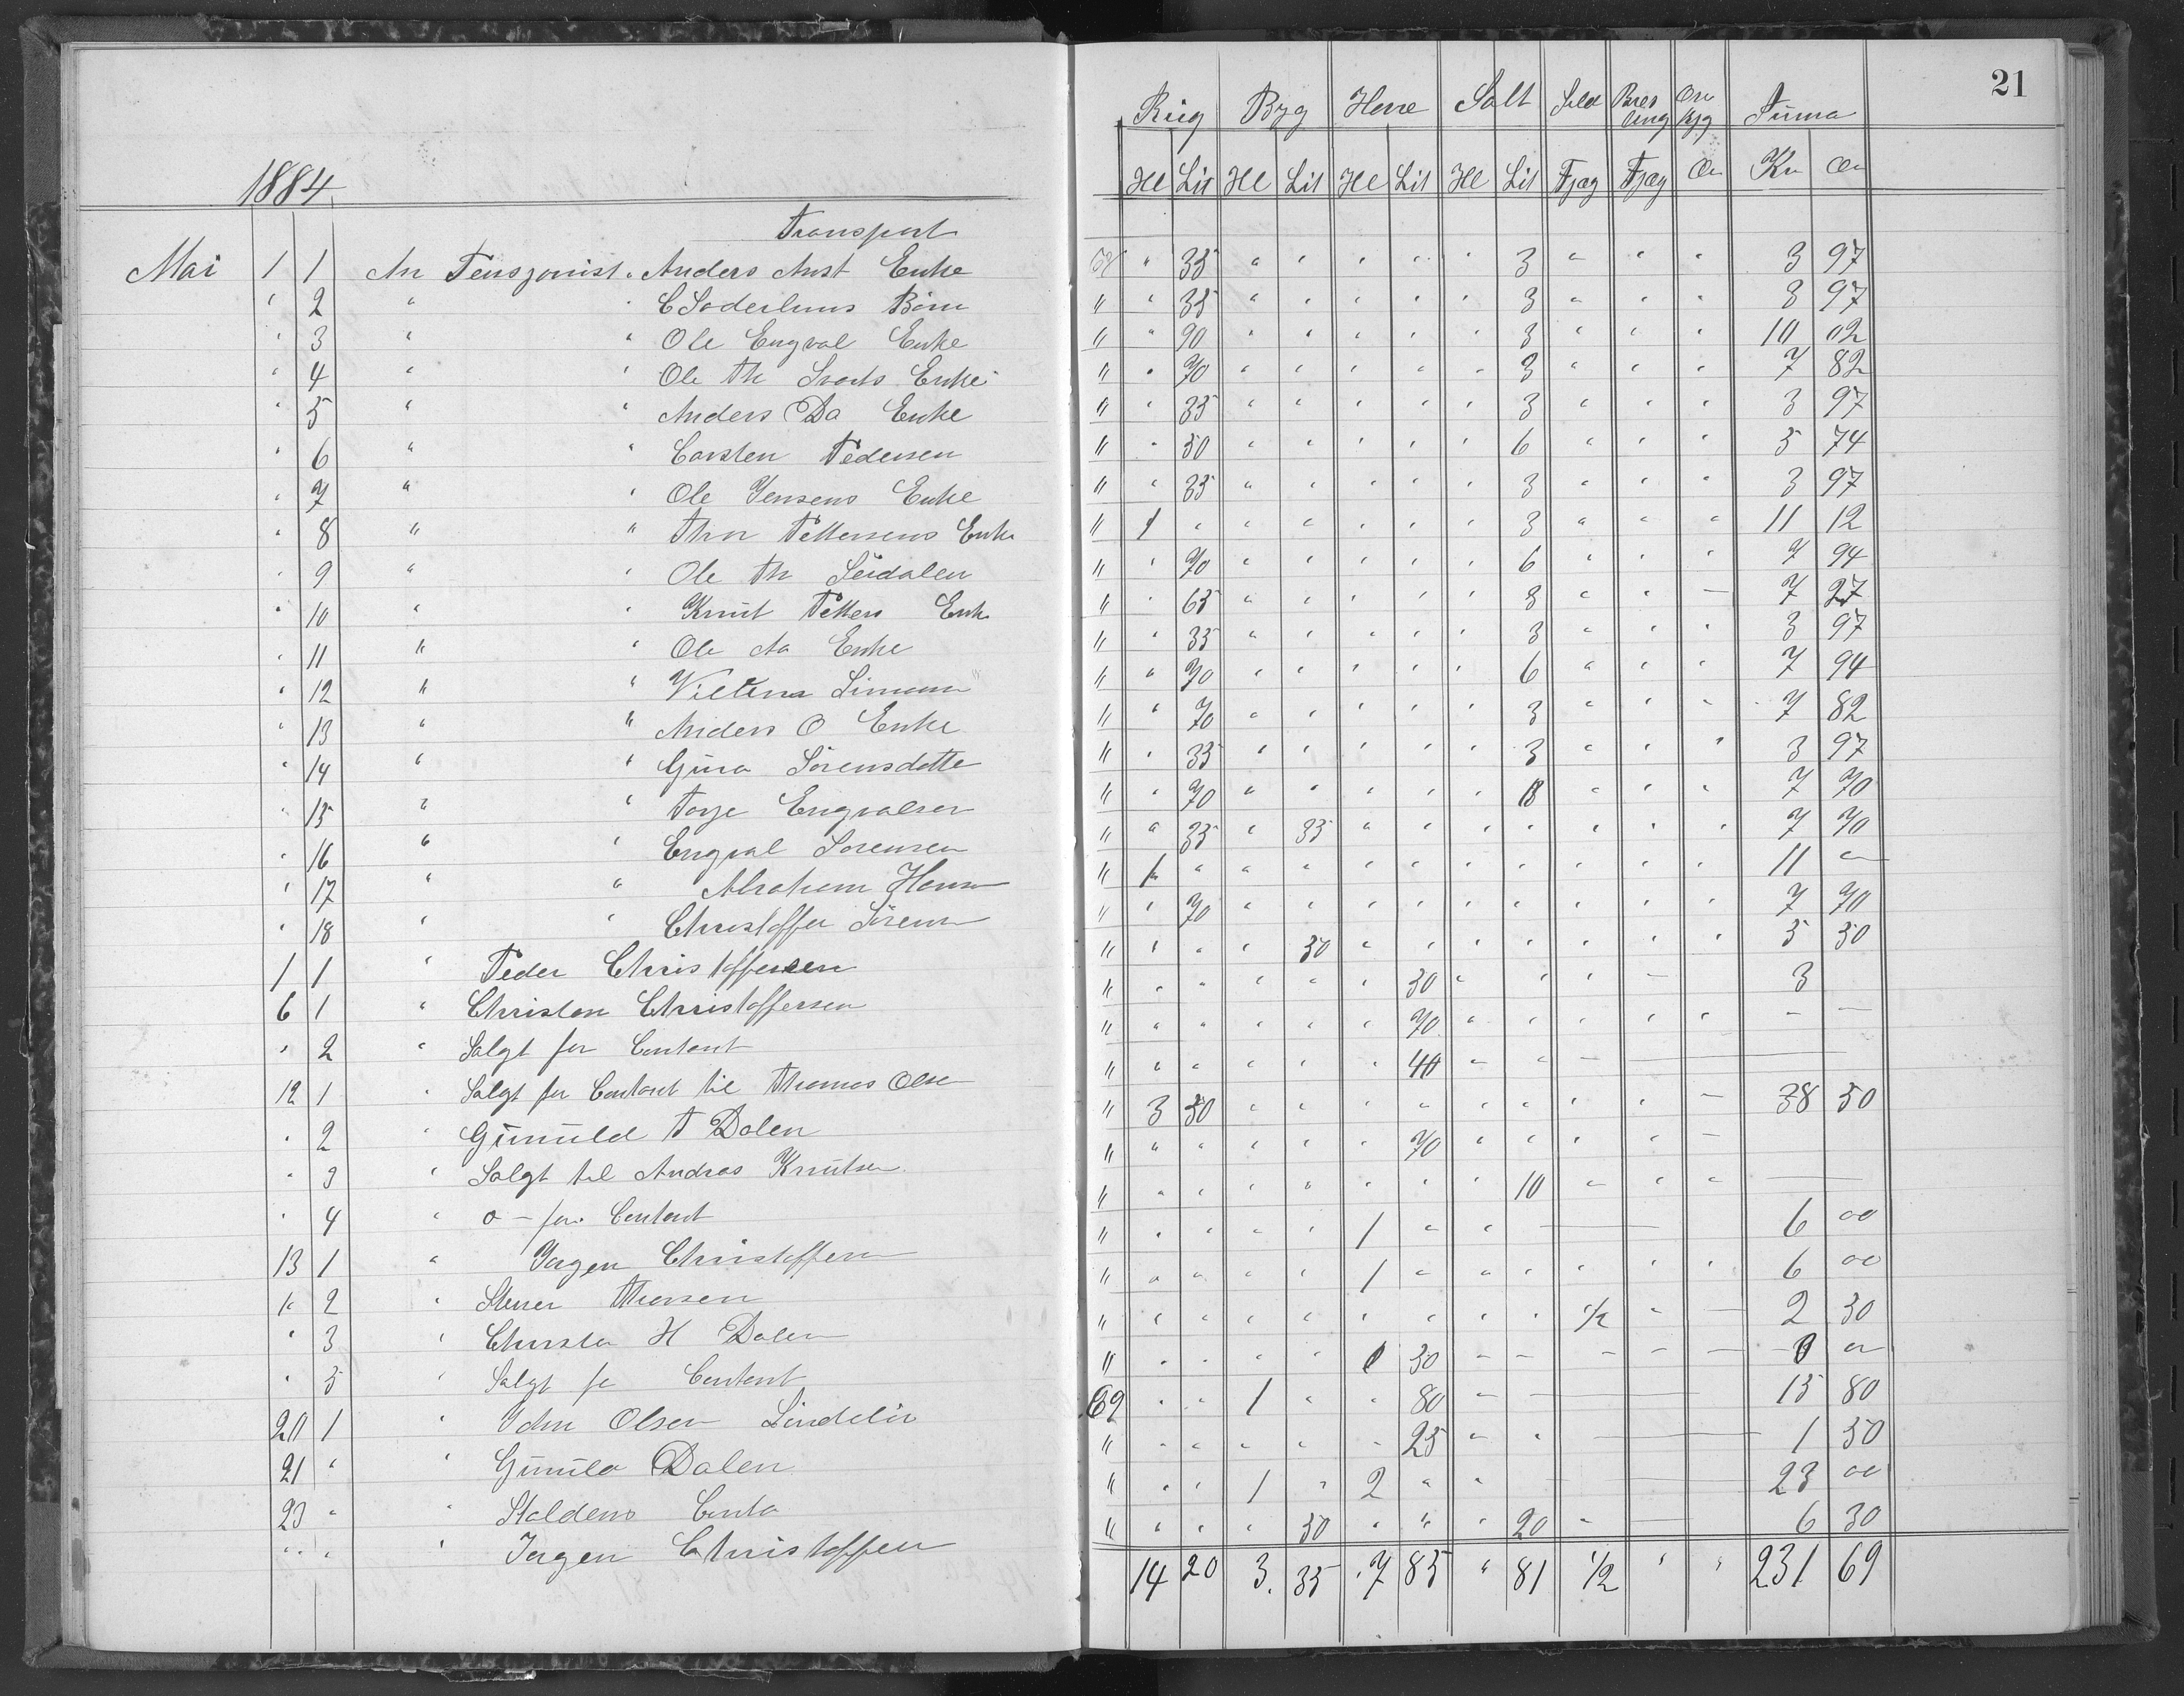 21
Rug Byg Havre Salt Sild Summa
Hl Lit Hl Lit Hl Lit Hl Lit Fjæg Fjæg Ør Kr Ør
1884
Transport
Mai 1 1 An Pensjonist " Anders Enke " 35 " " " " " 3 " " " 3 97
" 2 " " C Soderlunds Børn " " 35 " " " " " 3 " " " 3 97
" 3 " " Ole Engval Enke " " 90 " " " " " 3 " " " 10 02
" 4 " " Ole Th Enke " " 70 " " " " " 3 " " " 7 82
" 5 " " Anders Da Enke " " 35 " " " " " 3 " " " 3 97
" 6 " " Carsten Pedersen " " 50 " " " " " 6 " " " 5 74
" 7 " " Ole Jensens Enke " " 35 " " " " " 3 " " " 3 97
" 8 " " Thor Pettersens Enke " 1 " " " " " " 3 " " " 11 12
" 9 " " Ole Th " " 70 " " " " " 6 " " " 7 94
" 10 " " Knut Petters Enk " " 65 " " " " " 3 " " — 7 27
" 11 " " Ole Aa Enke " " 35 " " " " " 3 " " " 3 97
" 12 " " Simonsen " " 70 " " " " " 6 " " " 7 94
" 13 " " Anders O Enke " " 70 " " " " " 3 " " " 7 82
" 14 " " Gina Sørensdatte " " 35 " " " " " 3 " " " 3 97
" 15 " " Torje Engvalsen " " 70 " " " " " " " " 7 70
" 16 " " Engval Sørensen " " 35 " 35 " " " " " " " 7 70
" 17 " " Abraham Hansen " 1 " " " " " " " " " " 11 "
" 18 " " Christoffer Sørensen " " 70 " " " " " " " " " 7 70
1 1 " Peder Christoffersen " " " " 50 " " " " " " " 5 50
6 1 " Christen Christoffersen " " " " " " 30 " " " — 3
" 2 " Salgt for Contant " " " " " " 70 " " " " " — —
12 1 " Salgt for Contant til Thomas Olsen " " " " " " 40 " " —
" 2 " T Dalen " 3 50 " " " " " " " " — 38 50
" 3 " Salgt til Andras Knutsen " " " " " " 70 " " " " —
" 4 " o — for Contant " " " " " " " " 10 " " "
13 1 " Jørgen Christoffersen " " " " " 1 " " — — 6 00
" 2 " Thorsen " " " " " 1 " " " " " " 6 00
" 3 " H Dalen " " " " " " " " " 1/2 " — 2 30
" 5 " Salgt fo Contant " " " " " 30 — — — — —
20 1 " John Olsen 62 " " 1 " " 80 " — 15 80
21 " " Dalen " " " " " " 25 " " — 1 50
23 " " Conto " " " 1 " 2 " " — 23 00
" " " Jørgen Christoffersen " " " " 50 " " " 20 " — 6 30
14 20 3 35 7 85 " 81 1/2 " " 231 69